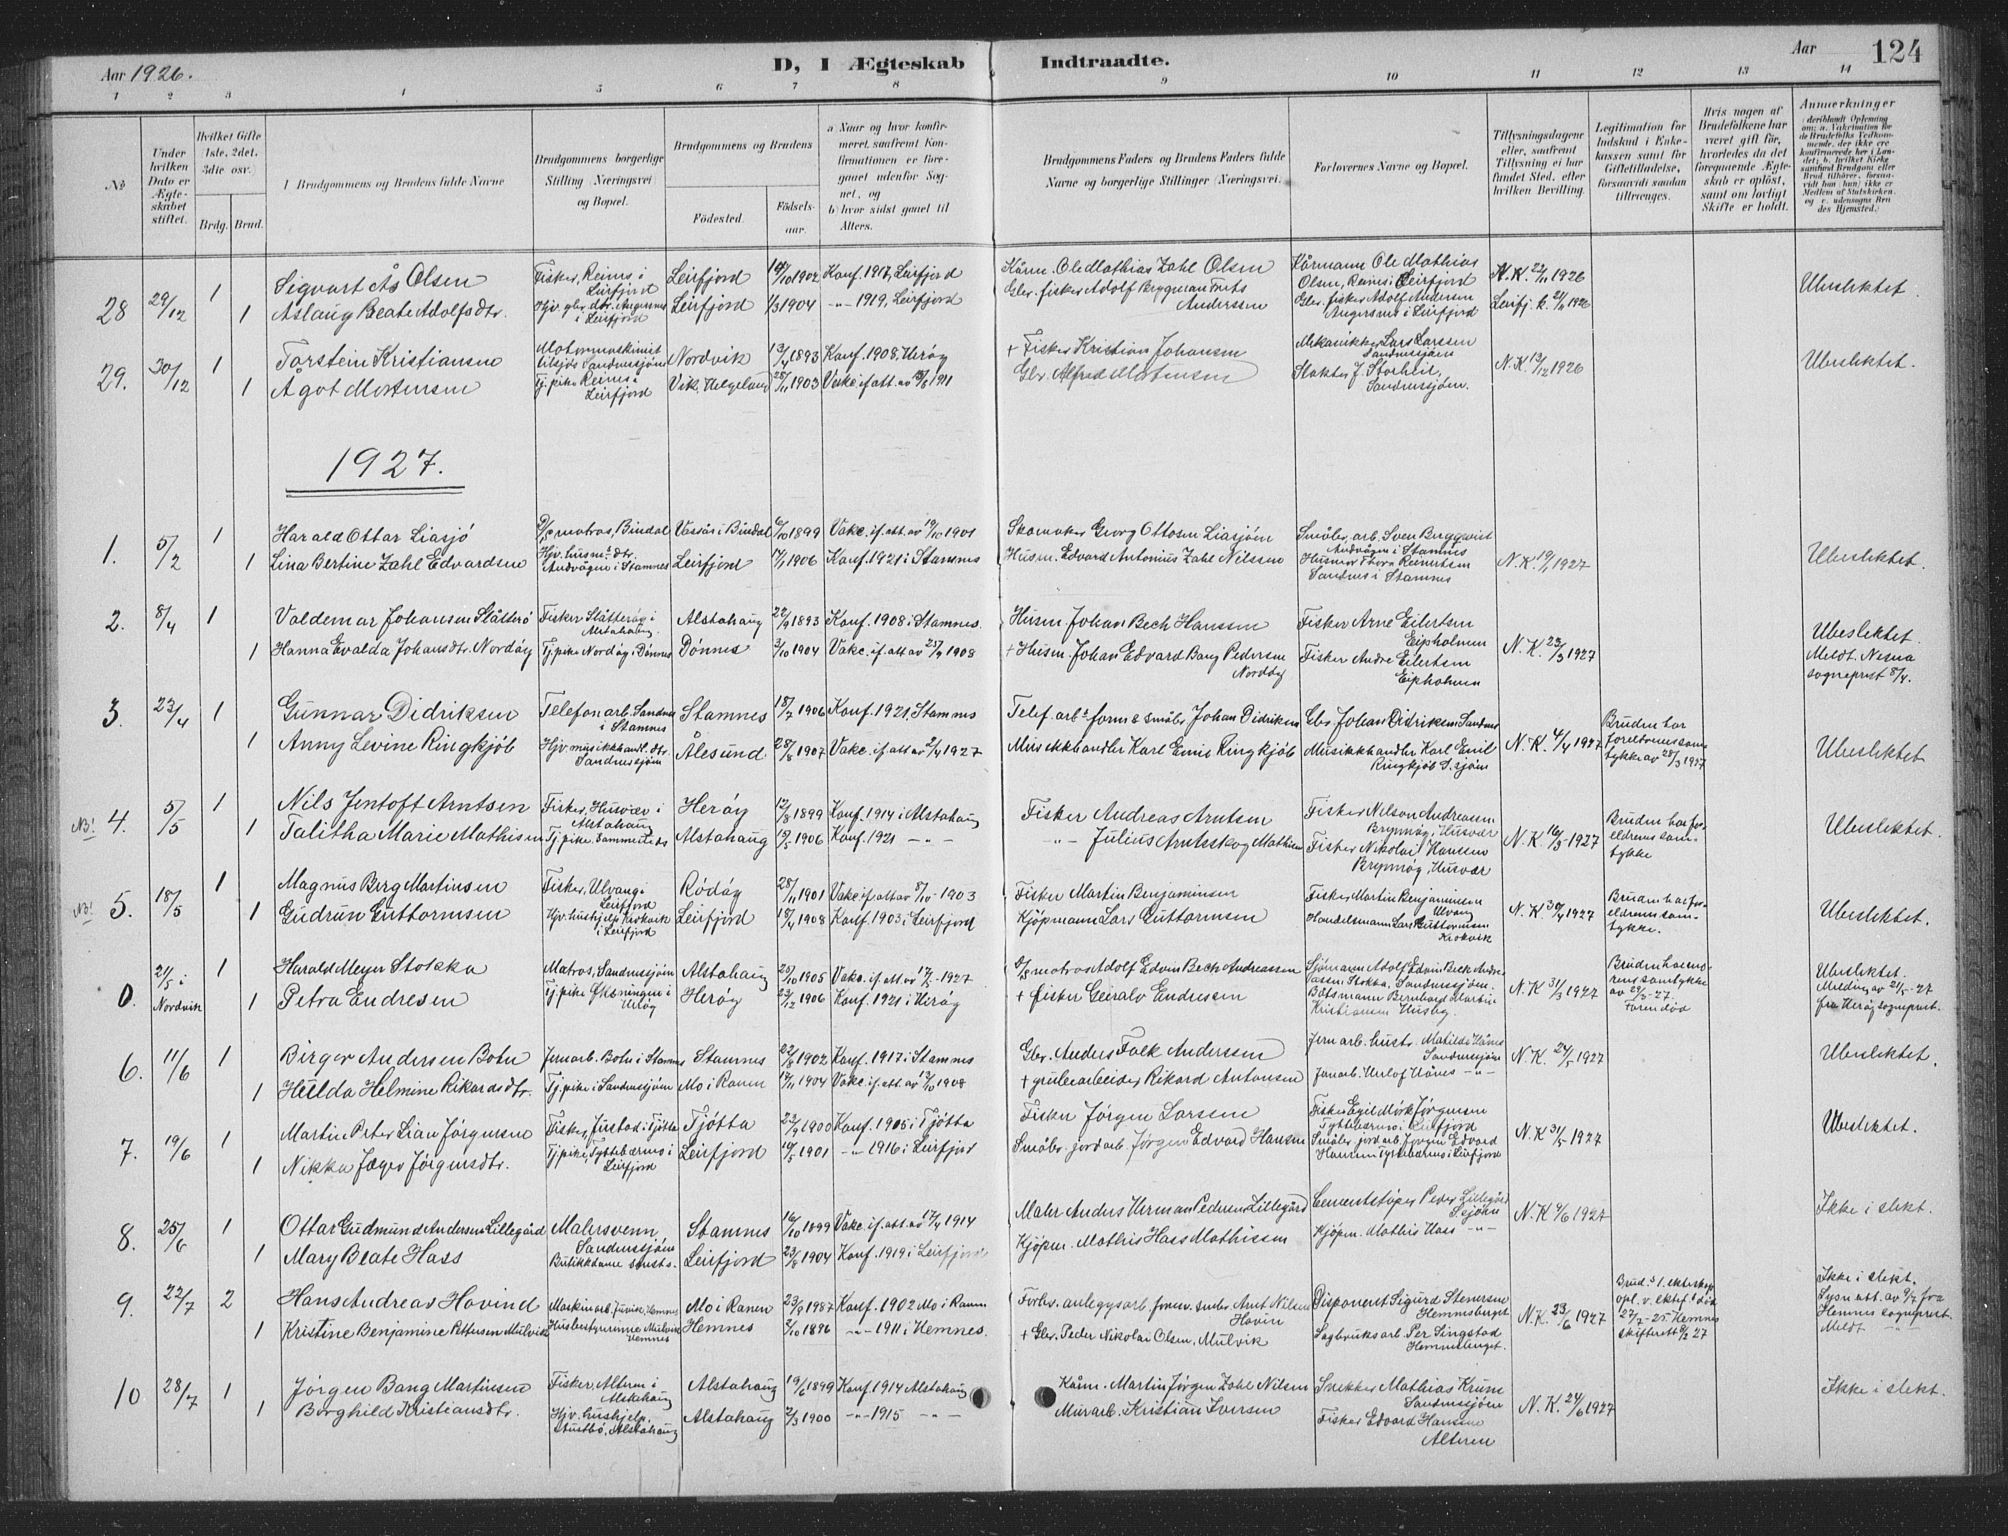 Aar 1926.
D, I Ægteskab Indtraadte.
Aar 124
1 2 3 4 5 6 7 8 9 10 11 12 13 14
No
Under hvilken Dato er Ægteskabet stiftet.
Hvilket Gifte 1ste, 2det, 3die osv.
Brdg. Brud.
1 Brudgommens og Brudens fulde Navne
Brudgommens borgerlige Stilling (Næringsvei) og Bopæl.
Brudgommens og Brudens
Födested.
Födselsaar.
a Naar og hvor konfirmeret, saafremt Konfirmationen er foregaaet udenfor Sognet, og
b) hvor sidst gaaet til Alters.
Brudgommens Faders og Brudens Faders fulde Navne og borgerlige Stillinger (Næringsvei.
Forlovernes Navne og Bopæl.
Tillysningsdagene eller, saafremt Tillysning ei har fundet Sted, efter hvilken Bevilling.
Legitimation for Indskud i Enkekassen samt for Giftetilladelse, forsaavidt saadan tiltrænges.
Hvis nogen af Brudefolkene har været gift før, hvorledes da det foregaaende Ægteskab er oplöst, samt om lovligt Skifte er holdt.
Anmerkninger
28 29/12 1 Sigvart Ås Olsen Fisker, Reines i Leirfjord Leirfjord 1902 Konf. 1917, Leirfjord Kårm. Ole Mathias Zahl Olsen Kårmann Ole Mathias Olsen, Reines i Leirfjord N.K. 22/11 1926 Ubeslektet.
1 Aslaug Beate Adolfsdtr. Hjv. gbr. dtr. Angersnes i Leirfjord Leirfjord 1/3 1904 -"- 1919, Leirfjord Gbr. fisker Adolf Brygmann Anderssen Gbr. fisker Adolf Andersen Angersnes i Leirfjord
29. 30/12 1 Torstein Kristiansen Motormaskinist tilsjøs Sandnessjøen Nordvik 13/4 1893 Konf. 1908, Herøy + Fisker Kristian Johansen Mekanikker Lars Larssen Sandnessjøen N.K. 13/12 1926 Ubeslektet.
1 Ågot Mortensen Tj. pike Reines i Leirfjord Vik, Helgeland 1903 Vakc. if. att. av 1911 Gbr. Alfred Mortensen J. Storheil, Sandnessjøen.
1927.
1. 5/2 1 Harald Ottar Liasjö matros, Bindal Vassås i Bindal 6/10 1899 Vakc. if. att. av 19/10 1901 Skomaker Georg Ottosen Liasjöen Småbr. arb. Sven Bergqvist Andvågen i Stamnes N.K. 19/1 1927 Ubeslektet.
1 Lina Bertine Zahl Edvardsen Hjv. husm. dtr. Andvågen i Stamnes Leirfjord 17/1 1906 Konf. 1921 i Stamnes Husm. Edvard Antonius Zahl Nilssen Husmor Thora Reinertsen Sandnes i Stamnes
2. 8/4 1 Valdemar Johansen Slåtterö Fisker Slåtteröy i Alstahaug. Alstahaug 22/9 1893 Konf. 1908 i Stamnes. Husm. Johan Bech Hanssen Fisker Arne Eilertsen Eipholmen N.K. 23/3 1927 Ubeslektet. Meldt Nesna sogneprest 8/4.
1 Hanna Evalda Johansdtr. Nordöy Tj. pike Nordöy i Dønnes Dønnes 3/10 1904 Vakc. if. att. av 25/9 1908 + Husm. Johan Edvard Bang Pedersen Nordöy Fisker Andre Eilertsen Eipholmen
3. 23/4 1 Gunnar Didriksen Telefonarb. Sandnes i Stamnes Stamnes 18/7 1906 Konf. 1921, Stamnes Telef. arb.s form. & småbr. Johan Didriksen Gbr. Johan Didriksen Sandnes N.K. 4/4 1927 Bruden har foreldrenes samtykke av 28/3 1927 Ubeslektet
1 Anny Levine Ringkjöb Hjv. musikkhandl. dtr. Sandnessjøen Ålesund 28/8 1907 Vakc. if. att. av 2/4 1927 Musikkhandler Karl Emil Ringkjöb Musikkhandler Karl Emil Ringkjöb S.sjøen
NB! 4. 5/5 1 Nils Jentoft Arntsen Fisker, Husvær i Alstahaug Herøy 12/8 1899 Konf. 1914 i Alstahaug Fisker Andreas Arntsen Fisker Nilson Andreassen Brynnøy, Husvær N.K. 16/3 1927 Bruden har foreldrenes samtykke Ubeslektet.
1 Talitha Marie Mathisen Tj. pike sammesteds Alstahaug 1906 Konf. 1921 -"- -"- Julius Arntskog Mathisen Fisker Nikolai Hanssen Brynnøy, Husvær
NB! 5. 18/5 1 Magnus Berg Martinsen Fisker, Ulvang i Leirfjord Rödöy 28/11 1901 Vakc. if. att. av 8/10 1903 Fisker Martin Benjaminsen Fisker Martin Benjaminsen Ulvang N.K. 30/4 1927 Bruden har foreldrenes samtykke. Ubeslektet.
1 Gudrun Guttormsen Hjv. hushjelp Krokvik i Leirfjord Leirfjord 1908 Konf. 1903 i Leirfjord Kjöpmann Lars Guttormsen Handelsmann Lars Guttormsen Krokvik
0 21/5 i Nordvik 1 Harald Meyer Stokka Matros, Sandnessjøen Alstahaug 25/10 1905 Vakc. if. att. av 17/5 1927 matros Adolf Edvin Bech Andreassen Sjømann Adolf Edvin Bech Andreassen Stokka, Sandnessjøen. N.K. 31/3 1927 Ubeslektet. Melding av 21/5-27 fra Herøy sogneprest.
1 Petra Endresen Tj. pike Økseningen i Herøy Herøy 23/12 1906 Konf. 1921 i Herøy + Fisker Geiralv Endresen Båtsmann Bernhard Martin Kristiansen Husby. Faren død
6. 11/6 1 Birger Andersen Botn Jernarb. Botn i Stamnes Stamnes 22/6 1902 Konf. 1917 i Stamnes Gbr. Anders Falk Anderssen Jernarb. hustr. Matilde Hånes Sandnessjøen N.K. 24/5 1927 Ubeslektet.
1 Hulda Helmine Rikardsdtr. Tj. pike i Sandnessjøen Mo i Ranen 17/11 1904 Vakc. if. att. av 1908 + grubearbeider Rikard Antonsen Jernarb. Hånes -"-
7. 19/6 1 Martin Peter Lian Jörgensen Fisker, Jüstad i Tjötta Tjötta 23/9 1900 Konf. 1905 i Tjötta Fisker Jörgen Larssen Fisker Egil Mörk Jörgensen Tyttebærnes i Leirfjord N.K. 31/5 1927 Ubeslektet.
1 Nikka Jæger Jörgensdtr. Tj. pike, Tyttebærnes i Leirfjord Leirfjord 1901 -"- 1916 i Leirfjord Småbr. jordarb. Jörgen Edvard Hansen Småbr. jordarb. Jörgen Edvard Hansen Tyttebærnes i Leirfjord
8. 25/6 1 Ottar Gudmund Andersen Lillegård Malersvenn Sandnessjøen Stamnes 16/10 1899 Vakc. if. att. av 17/4 1914 Maler Anders Herman Pedersen Lillegård Cementstøper Peder Lillegård Ssjøen N.K. 4/6 1927 Ikke i slekt.
1 Mary Beate Hass Butikkdame s.msts. Leirfjord 23/8 1904 Konf. 1919 i Leirfjord Kjöpm. Mathis Hass Mathissen Kjöpm. Mathis Hass -"-
9. 22/7 2 Hans Andreas Hovind Maskinarb. Juvik, Hemnes Mo i Ranen 23/9 1987 Konf. 1902 Mo i Ranen Forhv. anleggsarb. Arnt Nilsen Hovin Disponent Sigurd Stenersen Hemnesberget N.K. 23/6 1927 Brud.s 1. ekteskap opl. v. ektef.s død 27/7-25. Hemnes skifterett 27 Ikke i slekt. Lysn. att. av 9/7 fra Hemnes sogneprest. Meldt -"-
1 Kristine Benjamine Pettersen Mulvik Husbestyrerinne Mulvik Hemnes Hemnes 2/10 1896 -"- 1911 i Hemnes. + Gbr. Peder Nikolai Olsen, Mulvik Sagbruksarb. Per Singstad Hemnesberget.
10 28/7 1 Jörgen Bang Martinsen Fisker, Alteren i Alstahaug Alstahaug 19/6 1899 Konf. 1914 Alstahaug Kårm. Martin Jörgen Zahl Nilsen Snekker Mathias Krune Sandnessjøen N.K. 24/6 1927 Ikke i slekt.
1 Borghild Kristiansdtr. Hjv. hushjelp, Stustbö, Alstahaug Alstahaug 2/3 1900 -"- 1915 -"- Murarb. Kristian Iversen Fisker Edvard Hansen Alteren